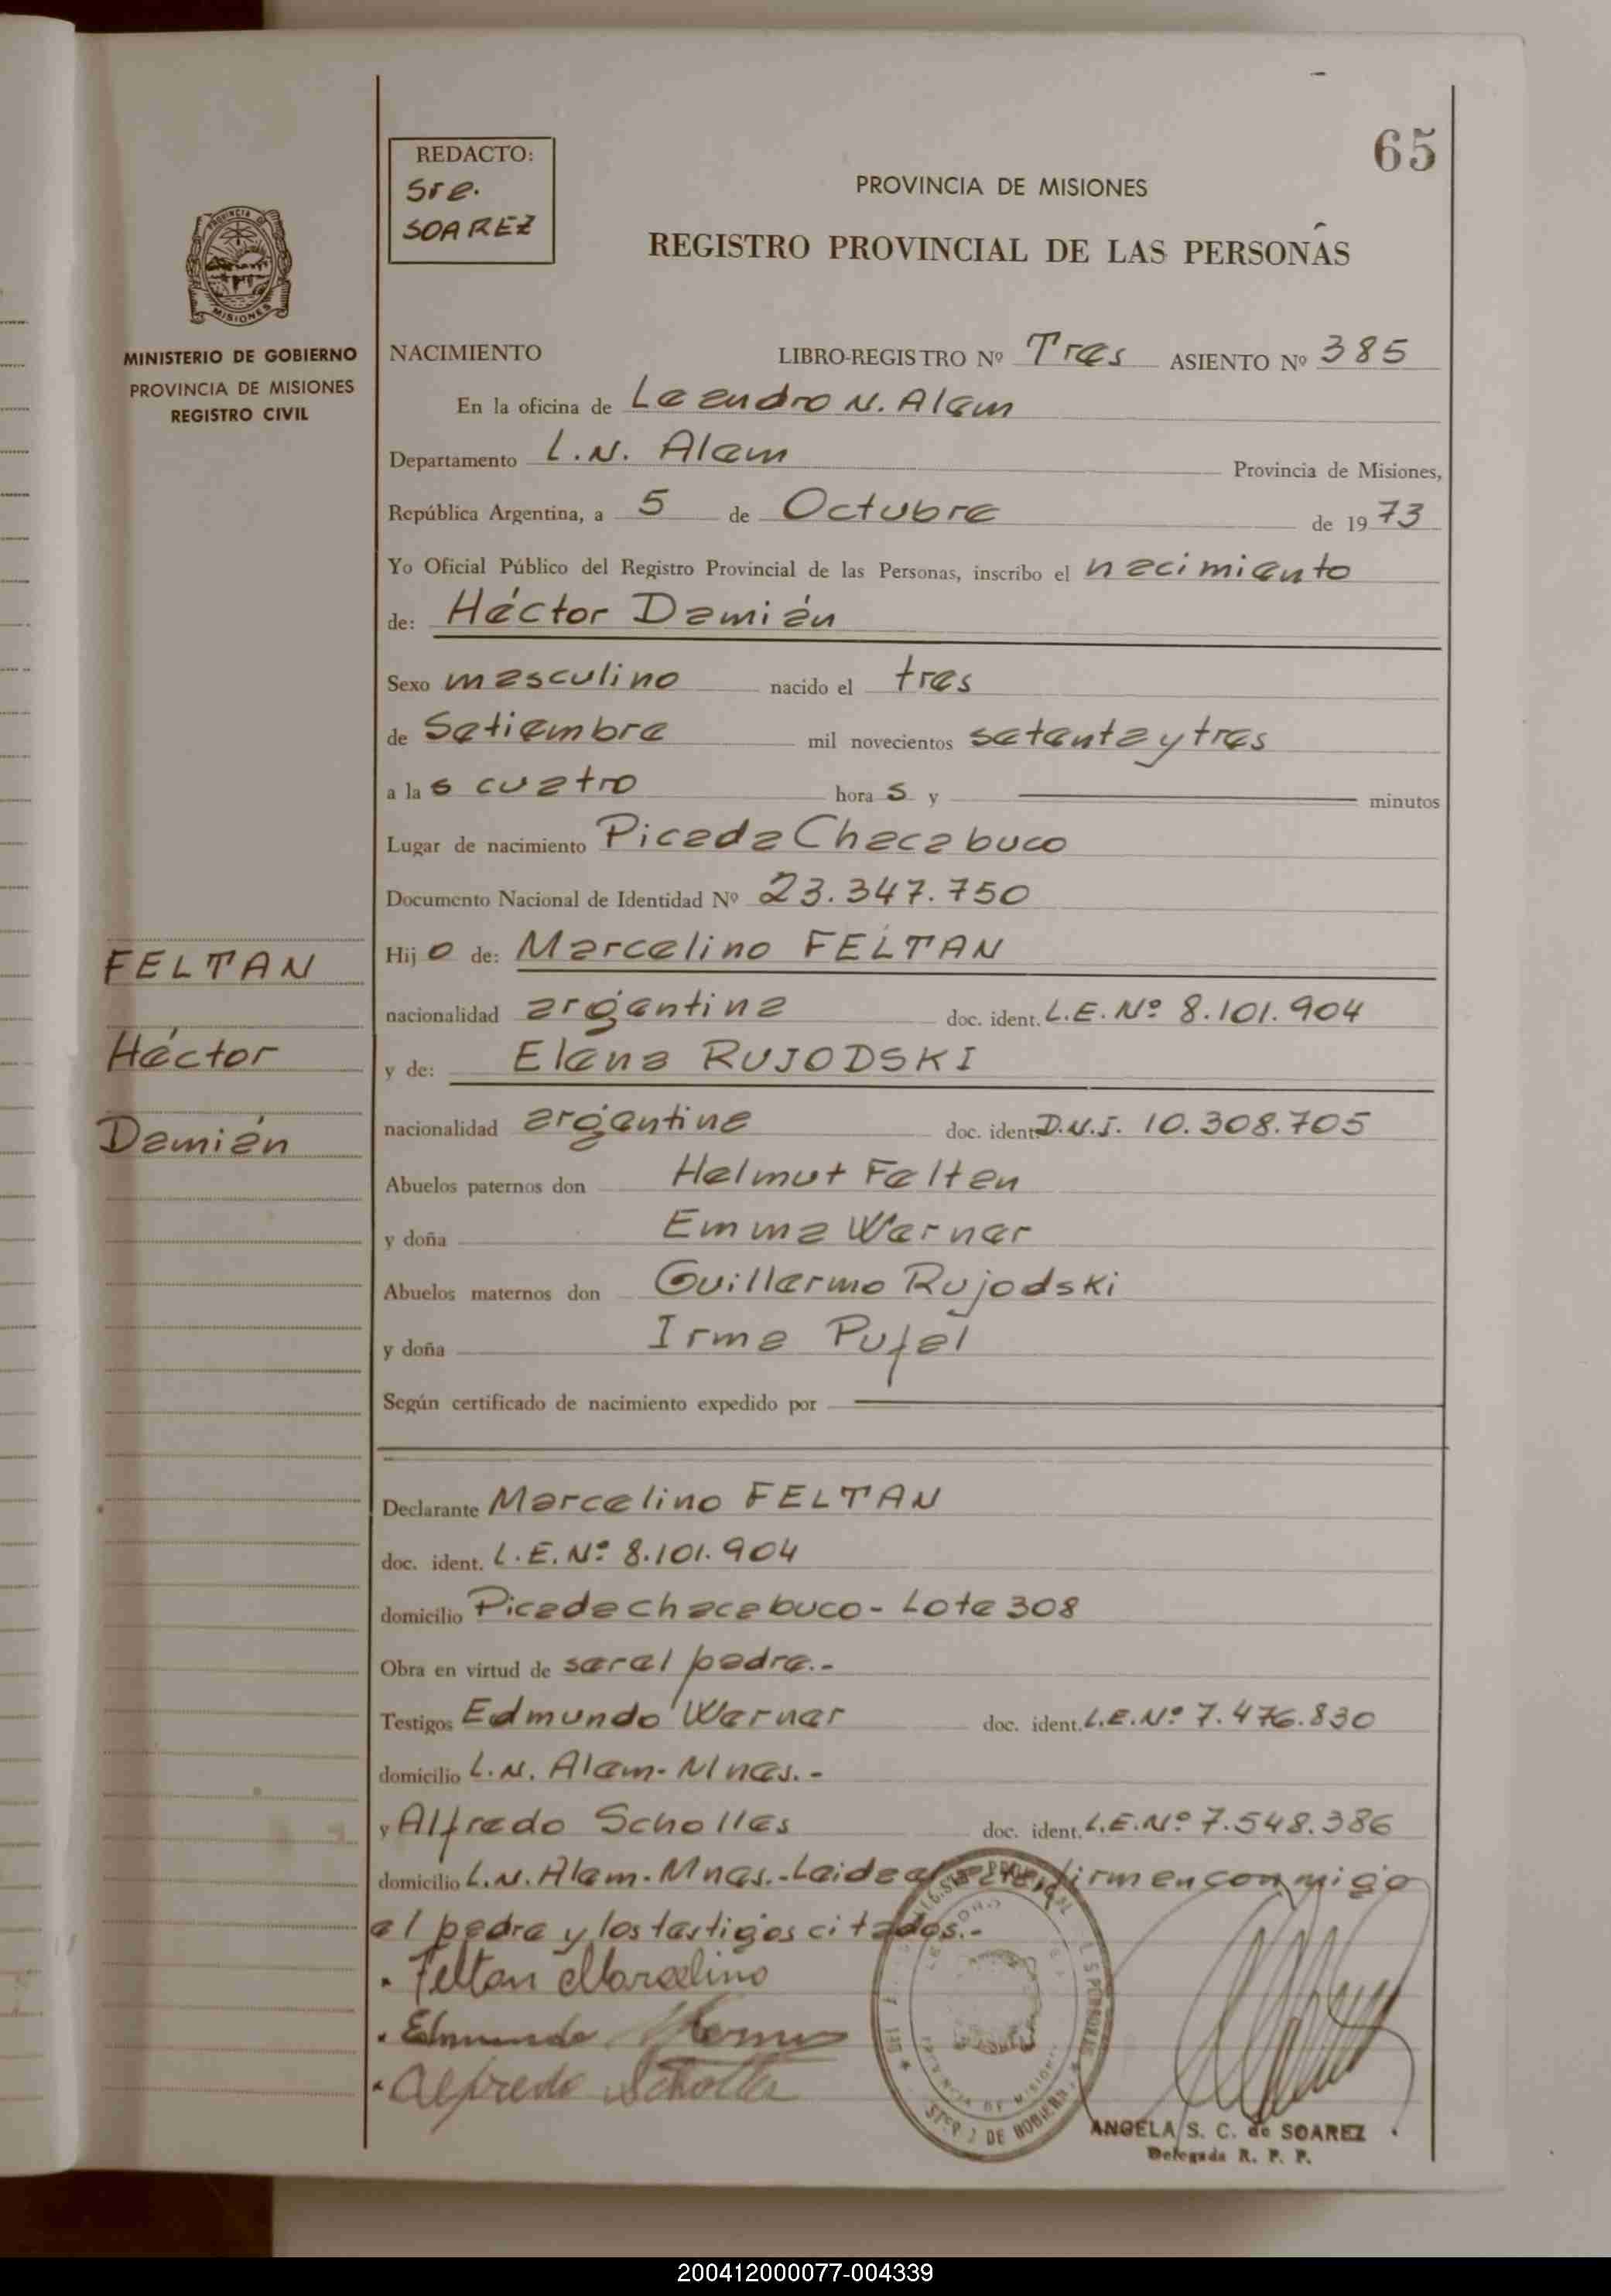 65
REDACTO:
Sra.
SOAREZ
PROVINCIA DE MISIONES
REGISTRO PROVINCIAL DE LAS PERSONAS
MINISTERIO DE GOBIERNO
PROVINCIA DE MISIONES
REGISTRO CIVIL
NACIMIENTO LIBRO-REGISTRO Nº Tres ASIENTO Nº 385
En la oficina de Leandro N. Alem
Departamento L.N. Alem Provincia de Misiones,
República Argentina, a 5 de Octubre de 1973
Yo Oficial Público del Registro Provincial de las Personas, inscribo el nacimiento
de: Héctor Damián
Sexo masculino nacido el tres
de Setiembre mil novecientos setenta y tres
a las cuatro horas y minutos
Lugar de nacimiento Picada Chacabuco
Documento Nacional de Identidad Nº 23.347.750
FELTAN
Hijo de: Marcelino FELTAN
nacionalidad argentina doc. ident. L.E. Nº 8.101.904
Héctor
y de: Elena RUJODSKI
Damián
nacionalidad argentina doc. ident. D.N.I. 10.308.705
Abuelos paternos don Helmut Feltan
y doña Emma Werner
Abuelos maternos don Guillermo Rujodski
y doña Irma Pufal
Según certificado de nacimiento expedido por
Declarante Marcelino FELTAN
doc. ident. L.E. Nº 8.101.904
domicilio Picada chacabuco - Lote 308
Obra en virtud de ser el padre.-
Testigos Edmundo Werner doc. ident. L.E. Nº 7.476.830
domicilio L.N. Alem - Mnes. -
y Alfredo Scholles doc. ident. L.E. Nº 7.548.386
domicilio L.N. Alem - Mnes. - Leida el acta, firman conmigo
el padre y los testigos citados.-
Feltan Marcelino
Edmundo Werner
Alfredo Scholles
PROVINCIA DE MISIONES
ANGELA S. C. de SOAREZ
Delegada R. P. P.
200412000077-004339